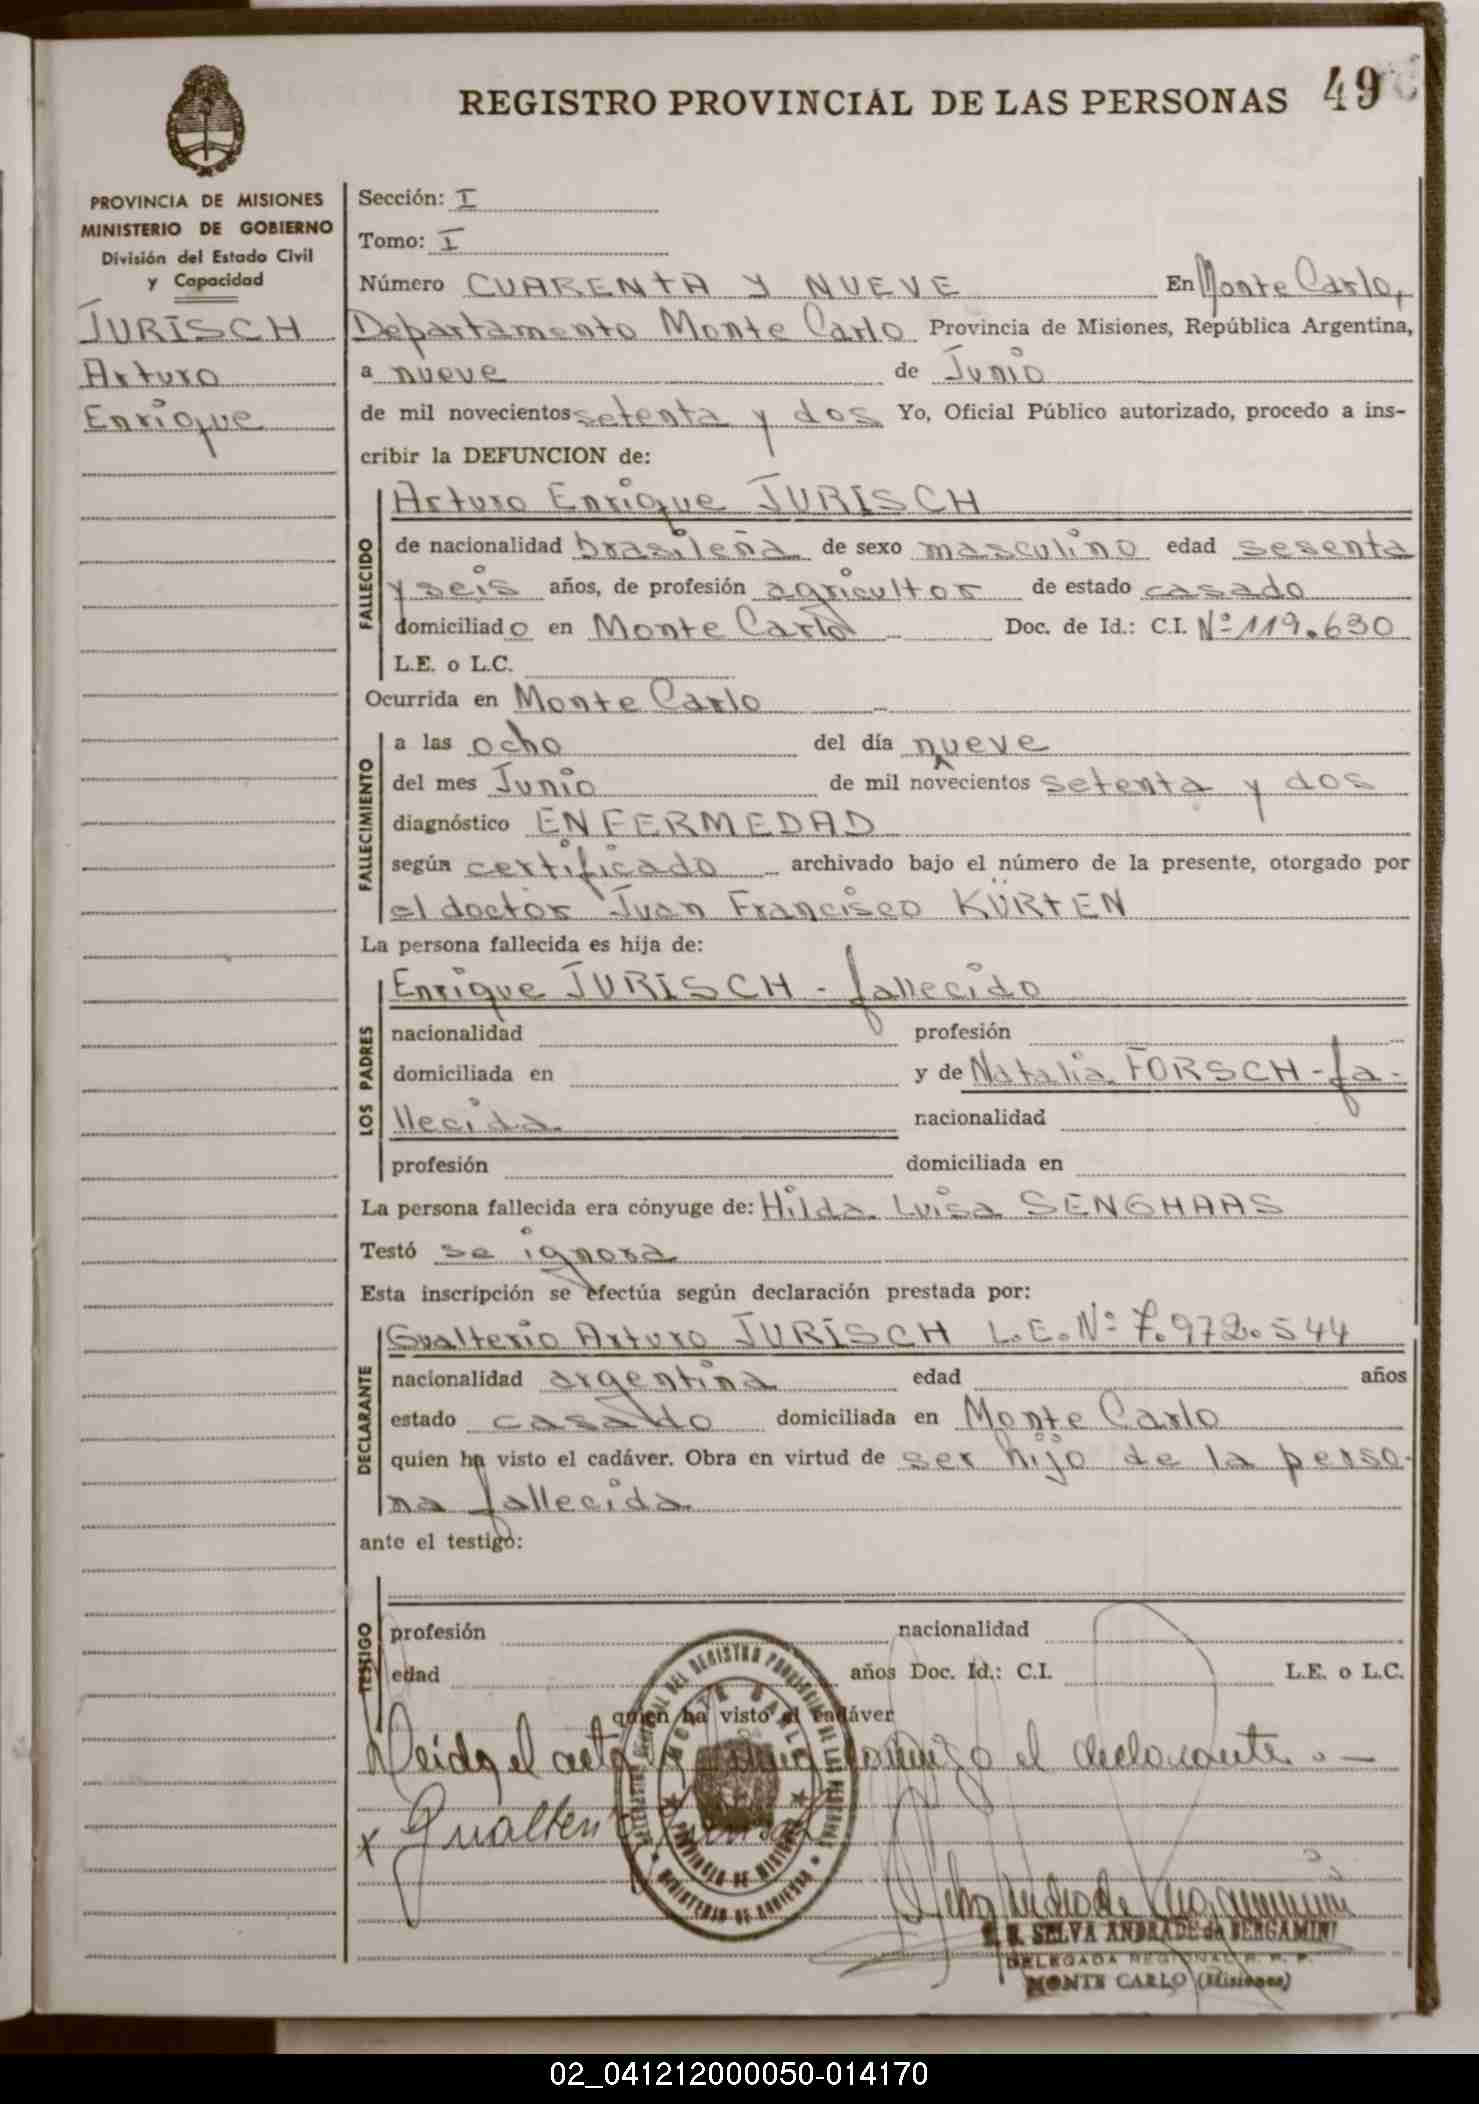 REGISTRO PROVINCIAL DE LAS PERSONAS 49
PROVINCIA DE MISIONES
MINISTERIO DE GOBIERNO
División del Estado Civil
y Capacidad
JURISCH
Arturo
Enrique
Sección: I
Tomo: I
Número CUARENTA Y NUEVE En Monte Carlo,
Departamento Monte Carlo Provincia de Misiones, República Argentina,
a nueve de Junio
de mil novecientos setenta y dos Yo, Oficial Público autorizado, procedo a ins-
cribir la DEFUNCION de:
FALLECIDO
Arturo Enrique JURISCH
de nacionalidad brasileña de sexo masculino edad sesenta
y seis años, de profesión agricultor de estado casado
domiciliado en Monte Carlo Doc. de Id.: C.I. Nº 119.630
L.E. o L.C.
Ocurrida en Monte Carlo
FALLECIMIENTO
a las ocho del día nueve
del mes Junio de mil novecientos setenta y dos
diagnóstico ENFERMEDAD
según certificado archivado bajo el número de la presente, otorgado por
el doctor Juan Francisco KÜRTEN
La persona fallecida es hija de:
LOS PADRES
Enrique JURISCH - fallecido
nacionalidad profesión
domiciliada en y de Natalia FORSCH - fa-
llecida nacionalidad
profesión domiciliada en
La persona fallecida era cónyuge de: Hilda Luisa SENGHAAS
Testó se ignora
Esta inscripción se efectúa según declaración prestada por:
DECLARANTE
Gualterio Arturo JURISCH L.E. Nº 7.972.544
nacionalidad argentina edad años
estado casado domiciliada en Monte Carlo
quien ha visto el cadáver. Obra en virtud de ser hijo de la perso-
na fallecida
ante el testigo:
TESTIGO
profesión nacionalidad
edad años Doc. Id.: C.I. L.E. o L.C.
quien ha visto el cadáver
Leida el acta conmigo el declarante. -
x Gualterio
S. R. SELVA ANDRADE de BERGAMINI
DELEGADA REGIONAL R. P. P.
MONTE CARLO (Misiones)
MONTE CARLO
PROVINCIA DE MISIONES
MINISTERIO DE GOBIERNO
02_041212000050-014170